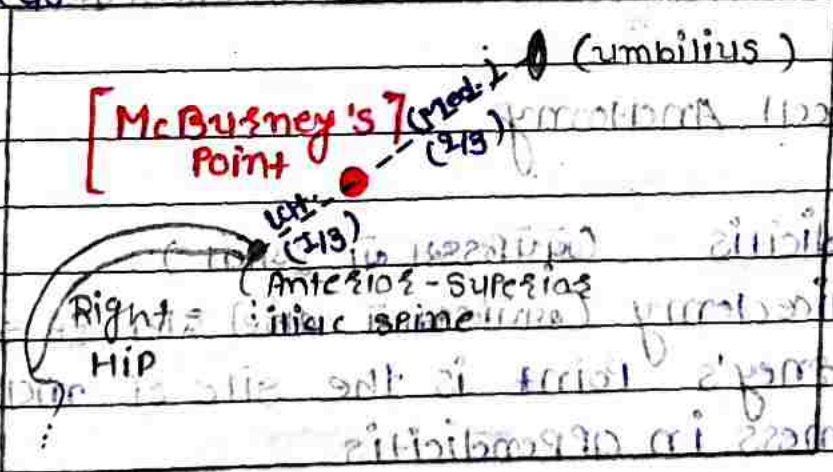 (umbilius)
[McBurney's]
Point
(Med.)
(2/3)
Lat.
(1/3)
(Anterior-Superior
iliac spine
Right
Hip